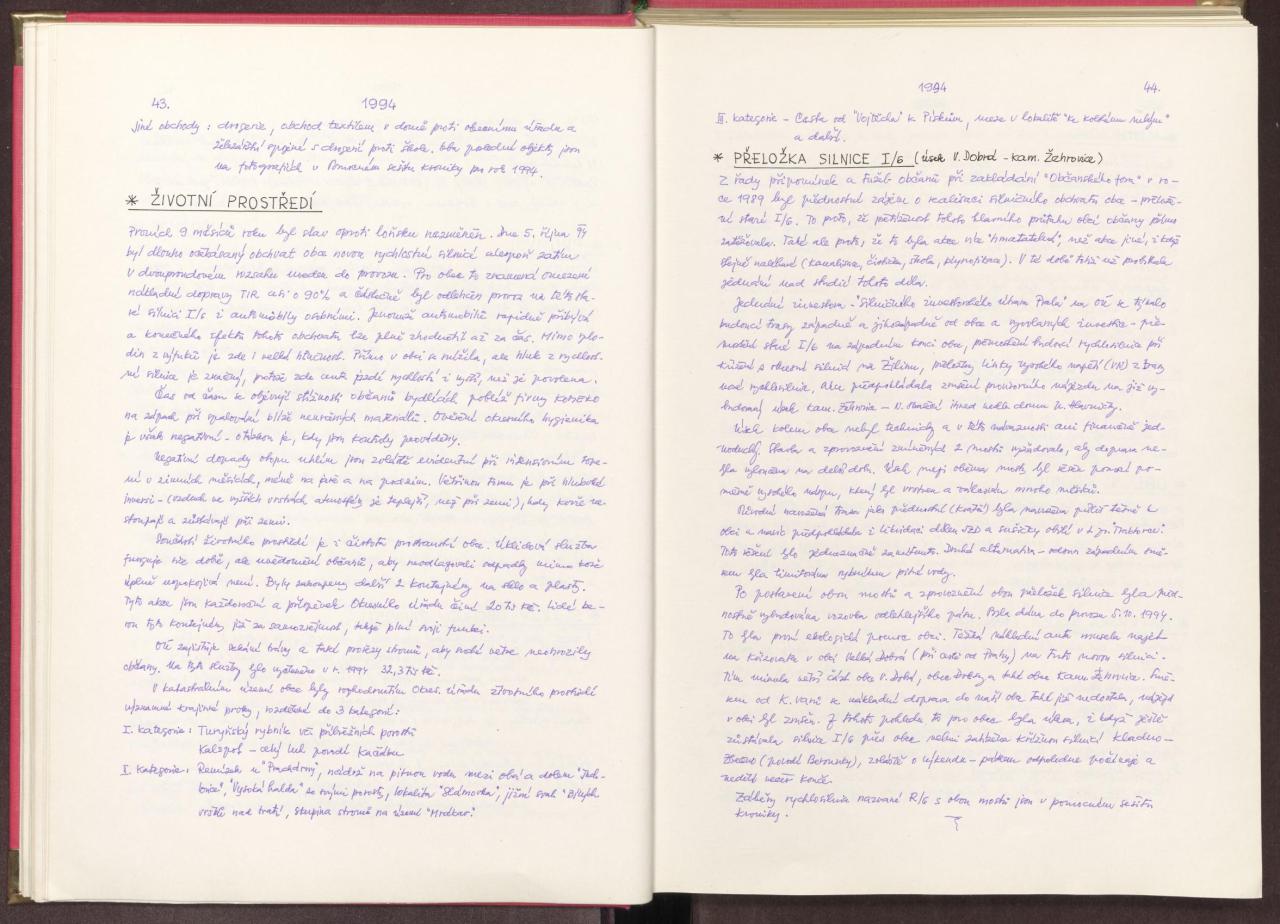 43. 1994
Jiné obchody : drogerie, obchod textilem v domě proti obecnímu úřadu a
železářství spojené s drogerií proti škole. Oba poslední objekty jsou
na fotografiích v Pomocném sešitu kroniky pro rok 1994.
* ŽIVOTNÍ PROSTŘEDÍ
Prvních 9 měsíců roku byl stav oproti loňsku nezměněn. Dne 5. října 94
byl dlouho očekávaný obchvat obce novou rychlostní silnicí alespoň zatím
v dvouproudovém rozsahu uveden do provozu. Pro obec to znamená omezení
nákladní dopravy TIR asi o 90% a částečně byl odlehčen provoz na této sta-
ré silnici I/6 i automobily osobními. Jenomže automobilů rapidně přibývá
a konečného efektu tohoto obchvatu lze plně zhodnotit až za čas. Mimo zplo-
din z výfuků je zde i velká hlučnost. Přímo v obci se snížila, ale hluk z rychlost-
ní silnice je značný, protože zde auta jezdí rychlostí i vyšší, než je povolena.
Čas od času se objevují stížnosti občanů bydlících poblíž firmy
na zápach při spalování blíže neurčených materiálů. Ověření okresního hygienika
je však negativní - otázkou je, kdy jsou kontroly prováděny.
Negativní dopady otopu uhlím jsou zvláště evidentní při intensivním tope-
ní v zimních měsících, méně na jaře a na podzim. Většinou tomu je při hluboké
inversi - (vzduch ve vyšších vrstvách atmosféry je teplejší, než při zemi), kdy kouře ne-
stoupají a zůstávají při zemi.
Součástí životního prostředí je i čistota prostranství obce. Úklidová služba
funguje sice dobře, ale uvědomění občanů, aby neodkládali odpadky mimo koše
úplně uspokojivá není. Byly zakoupeny další 2 kontejnery na sklo a plasty.
Tyto akce jsou každoroční a příspěvek Okresního úřadu činí 20 tis Kč. Lidé be-
rou tyto kontejnery již za samozřejmost, takže plní svoji funkci.
OÚ zajišťuje sekání trávy a také prořezy stromů, aby suché větve neohrozily
občany. Na tyto služby bylo vydáno v r. 1994 32,3 tis Kč.
V katastrálním území obce byly rozhodnutím Okres. úřadu životního prostředí
významné krajinné prvky, rozdělené do 3 kategorií:
I. kategorie : Turyňský rybník vč. příbřežních porostů
Kalspot - celý luh povodí Kačáku
II. kategorie : Remízek u "Prachárny", nádrž na pitnou vodu mezi obcí a dolem
"Vysoká halda" se svými porosty, lokalita "Slámovka", jižní svah "Bílých
vršků nad tratí", skupina stromů na území "Mrákav".
1994 44.
III. kategorie - Cesta od "Vojtěcha" k Pískům, meze v lokalitě "Ke kolskému mlýnu"
a další.
* PŘELOŽKA SILNICE I/6 (úsek V. Dobrá - Kam. Žehrovice)
Z řady připomínek a tužeb občanů při zakládání "Občanského fora" v ro-
ce 1989 byl přednostní zájem o realisaci silničního obchvatu obce - přelože-
ní staré I/6. To proto, že přetíženost tohoto hlavního průtahu obcí občany přímo
zatěžovala. Také ale proto, že to byla akce více "hmatatelná", než akce jiné, i když
stejně naléhavé (kanalisace, čistička, škola, plynofikace). V té době totiž už probíhala
jednání nad studií tohoto díla.
Jednání investora - "Silničního investorského útvaru Praha" na OÚ se týkalo
budoucí trasy západně a jihozápadně od obce a vyvolaných investic - pře-
mostění staré I/6 na západním konci obce, přemostění budoucí rychlosilnice při
křížení s okresní silnicí na Žilinu, přeložky linky vysokého napětí (VN) z trasy
nové rychlosilnice. Akce předpokládala zrušení provizorního nájezdu na již vy-
budovaný úsek Kam. Žehrovice - N. Strašecí ihned vedle domu
Úsek kolem obce nebyl technicky a v této náročnosti ani finančně jed-
noduchý. Stavba a zprovoznění zmíněných 2 mostů vyžadovalo, aby doprava ne-
byla vyloučena na delší dobu. Úsek mezi oběma mosty byl veden pomocí po-
měrně vysokého náspu, který byl vrstven a válcován mnoho měsíců.
Původní navržená trasa jako přednostní (kratší) byla navržena příliš těsně k
obci a navíc předpokládala i likvidaci dílen JZD a
Toto řešení bylo jednoznačně zamítnuto. Druhá alternativa - vedení západním smě-
rem byla limitována rybníkem pitné vody.
Po postavení obou mostů a zprovoznění obou přeložek silnice byla před-
nostně vybudována vozovka odlehlejšího pásu. Byla dána do provozu 5.10.1994.
To byla první ekologická pomoc obci. Těžká nákladní auta musela najet
na křižovatce v obci Velká Dobrá (při cestě od Prahy) na tuto novou silnici.
Tím minula větší část obce V. Dobré, obec Doksy a také obec Kam. Žehrovice. Smě-
rem od K. Varů se nákladní doprava do naší obce také již nedostala, nájezd
v obci byl zrušen. Z tohoto pohledu to pro obec byla úleva, i když ještě
zůstávala silnice I/6 přes obec velmi zatížena křížením silnicí Kladno -
Zbečno (povodí Berounky), zvláště o víkendu - pátkem odpoledne počínaje a
nedělí večer konče.
Záběry rychlosilnice nazvané R/6 s obou mostů jsou v pomocném sešitu
kroniky.